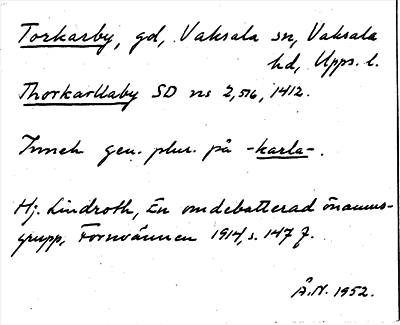 Torkarby, gd, Vaksala sn, Vaksala
hd, Upps. l.
Thorkarllaby SD ns 2,516, 1412.
Inneh gen. plur. på -karla-.
Hj. Lindroth, En omdebatterad önamns-
grupp, Fornvännen 1914, s. 147 f.
Å.N. 1952.